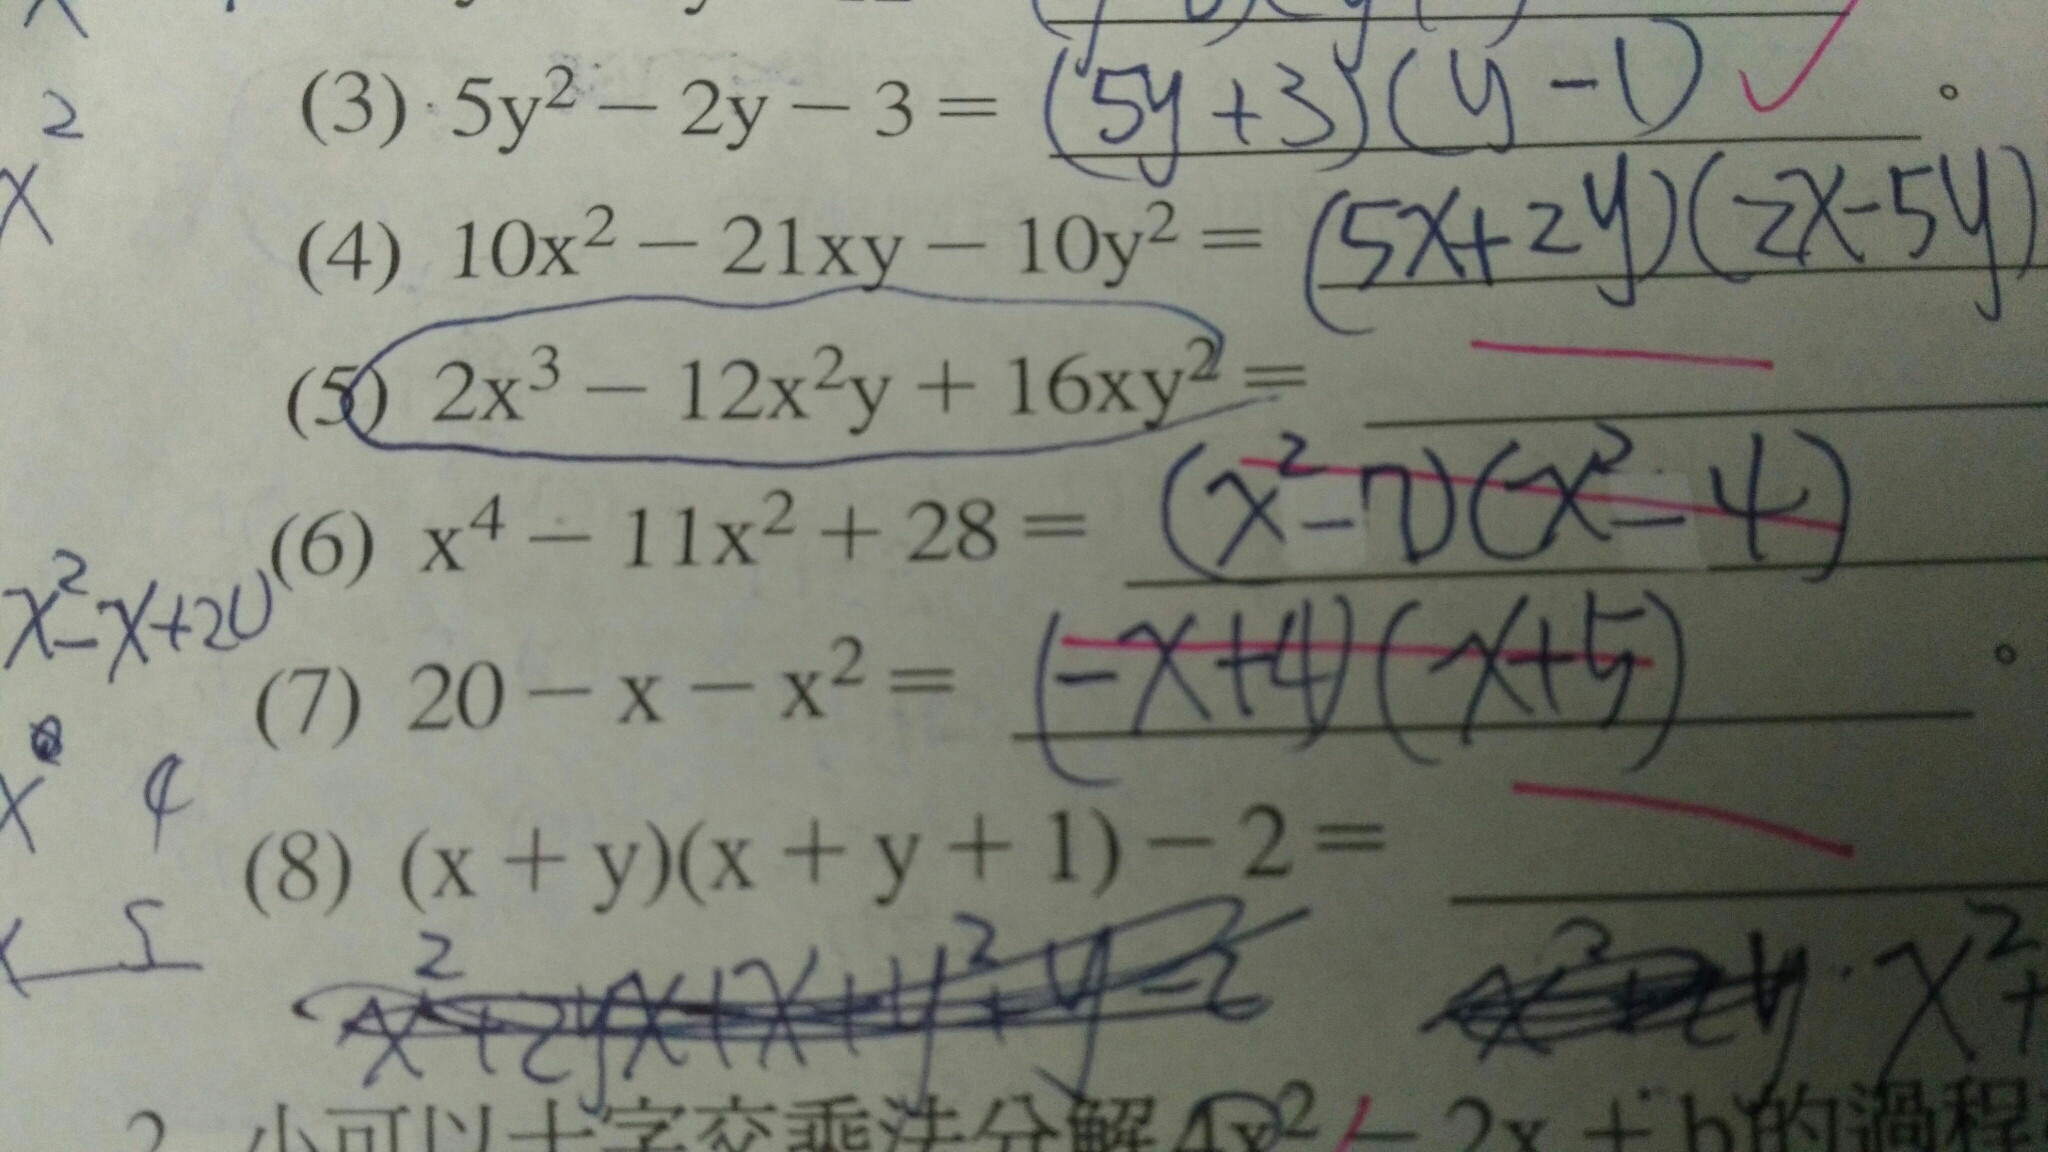 (3) 5y² − 2y − 3 = (5y+3)(y−1) 。
x²
(4) 10x² − 21xy − 10y² = (5x+2y)(2x-5y)
(5) 2x³ − 12x²y + 16xy² =
(6) x⁴ − 11x² + 28 = (x²-7)(x²-4)
x²-x+20
(7) 20 − x − x² = (-x+4)(x+5) 。
x 4
(8) (x + y)(x + y + 1) − 2 =
x 5
x²+
2. 小可以十字交乘法分解4x² − 2x + b的過程